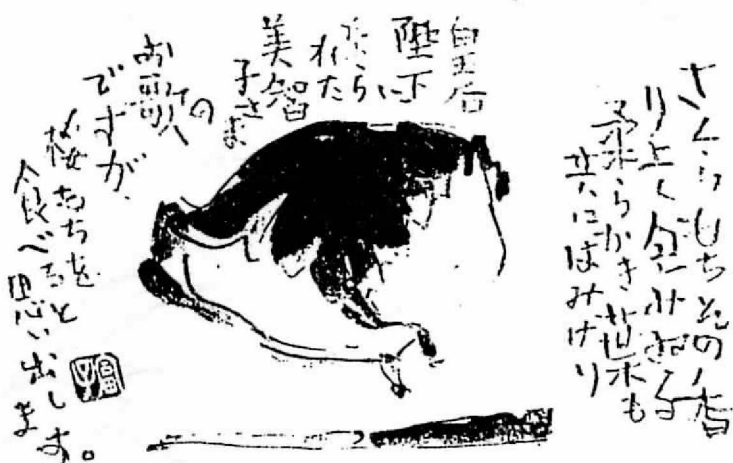 さくらもちその香
りよく包みゐる
柔らかき葉も
共にはみけり
皇后
陛下に
なら
れた
美智
子さま
の
お歌
ですが、
桜もちを
食べると
思い出します。